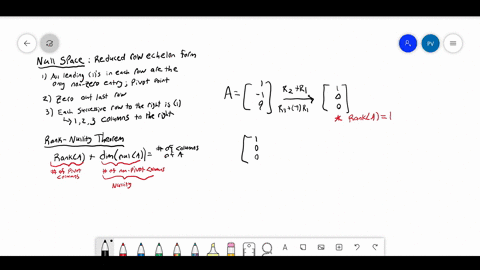 Null Space: Reduced row echelon form
1) All leading (1)s in each row are the
only non-zero entry; Pivot Point
2) Zero out last row
3) Each successive row to the right is (1)
↳ 1, 2, 3 columns to the right
A = [1 -1 9] R2+R1 R3+(-9)R1 → [1 0 0]
* Rank(A)=1
Rank-Nullity Theorem
Rank(A) + dim(nul(A)) = # of columns of A
# of pivot columns
# of non-pivot columns
Nullity
[1 0 0
PV
A